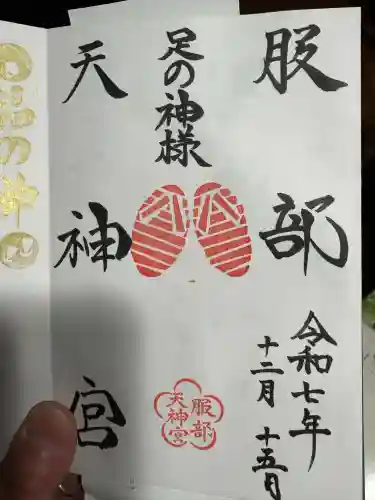 服部
令和七年
十二月十五日
足の神様
天神宮
服部
天神宮
の神